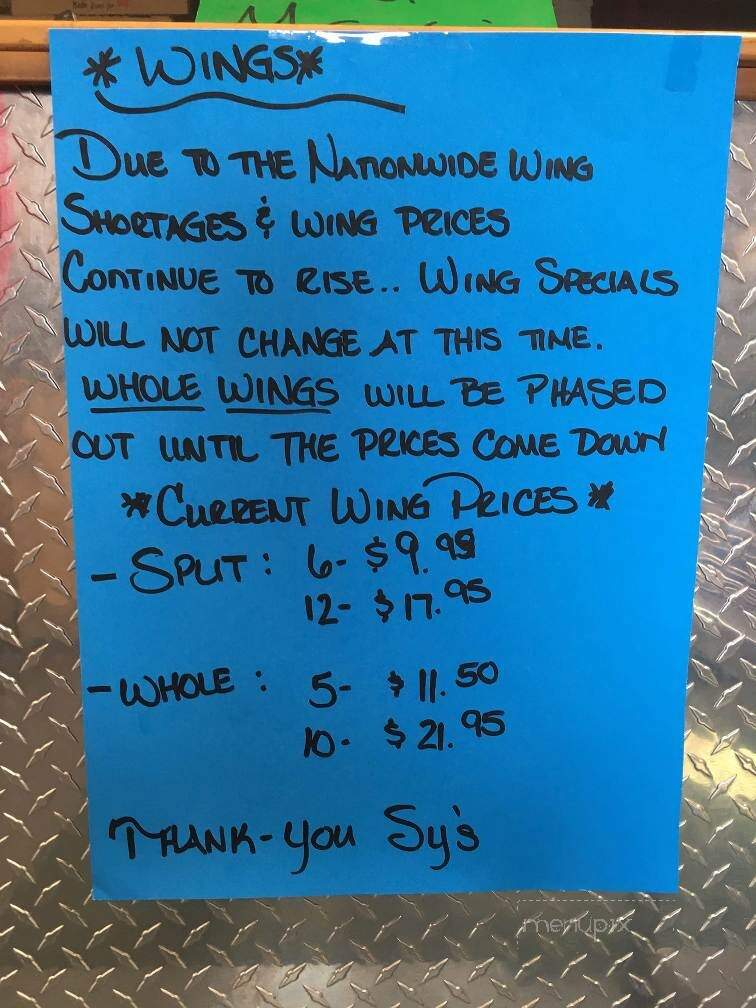 *WINGS*
DUE TO THE NATIONWIDE WING
SHORTAGES & WING PRICES
CONTINUE TO RISE.. WING SPECIALS
WILL NOT CHANGE AT THIS TIME.
WHOLE WINGS WILL BE PHASED
OUT UNTIL THE PRICES COME DOWN
*CURRENT WING PRICES*
- SPLIT: 6- $9.95
12- $17.95
- WHOLE: 5- $11.50
10- $21.95
THANK-YOU Sy's
menupix